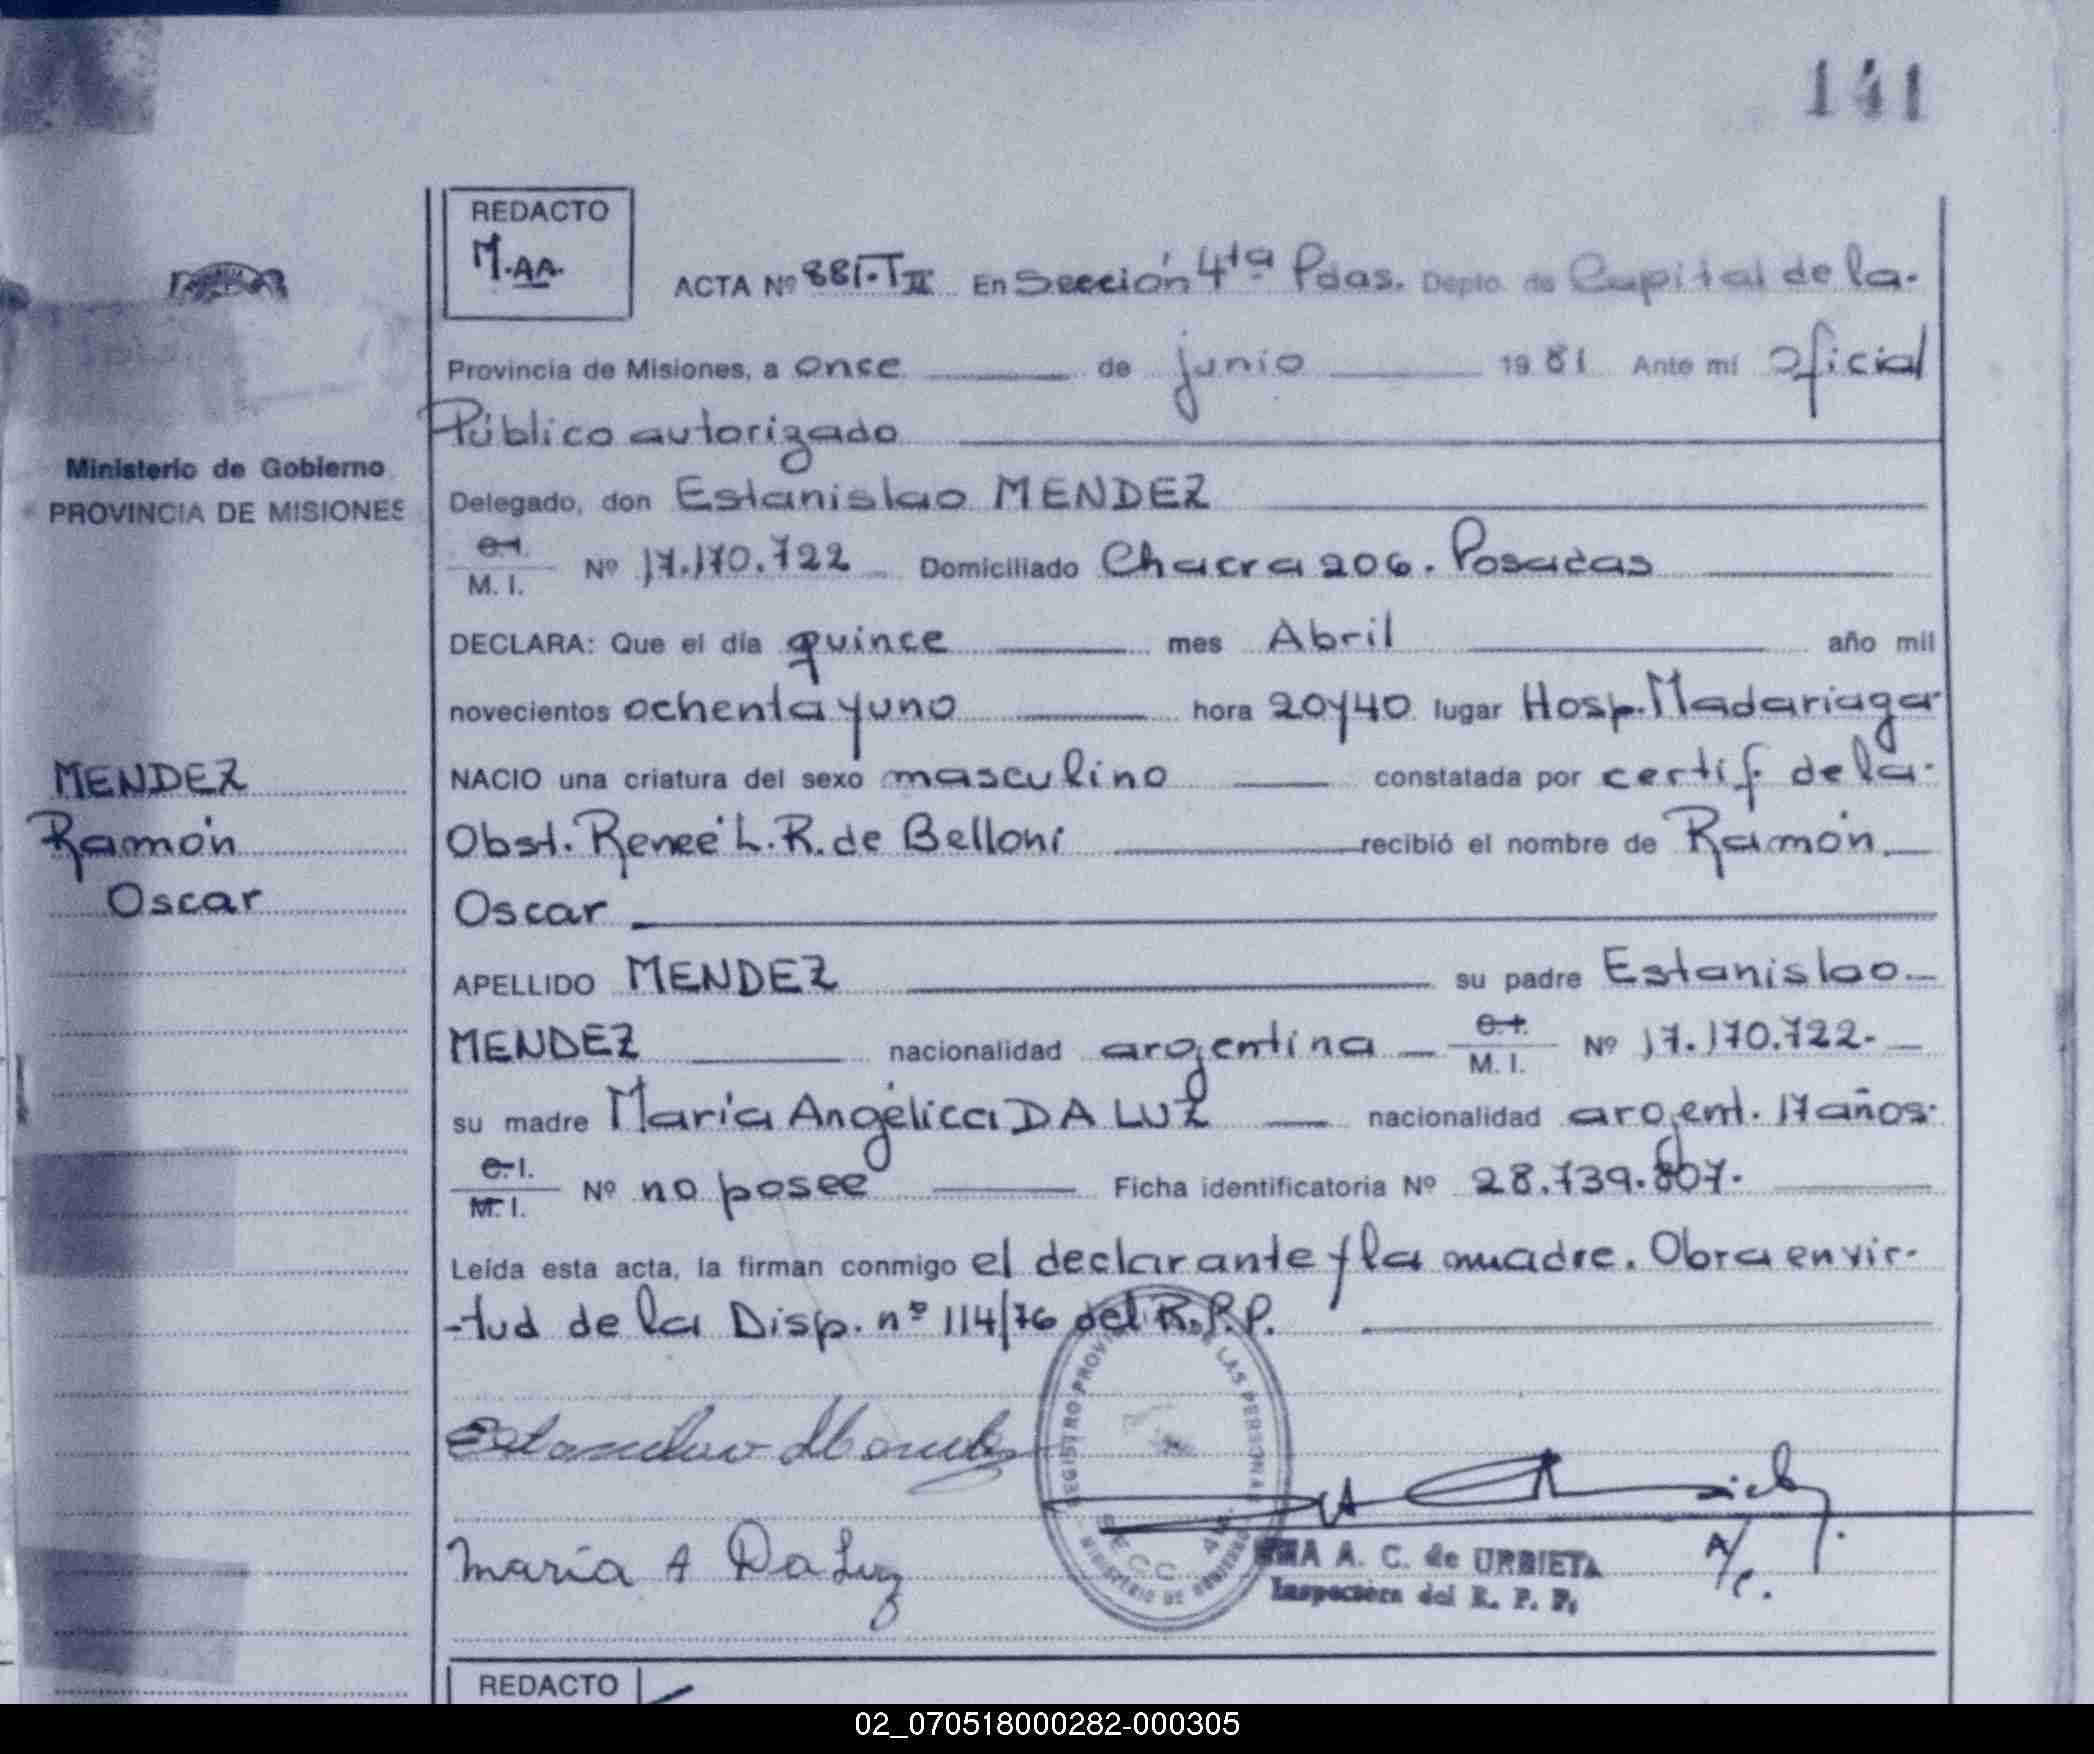 141
REDACTO
M.AA.
ACTA Nº 881.TII En Sección 4ta Pdas. Depto. de Capital de la.
Provincia de Misiones, a once de junio 1981 Ante mí Oficial
Público autorizado
Ministerio de Gobierno
PROVINCIA DE MISIONES
Delegado, don Estanislao MENDEZ
C.I.
M. I. Nº 17.170.722 Domiciliado Chacra 206. Posadas
DECLARA: Que el día quince mes Abril año mil
novecientos ochenta y uno hora 20y40 lugar Hosp. Madariaga
MENDEZ
Ramón
Oscar
NACIO una criatura del sexo masculino constatada por certif. de la.
Obst. Reneé L. R. de Belloni recibió el nombre de Ramón
Oscar
APELLIDO MENDEZ su padre Estanislao
MENDEZ nacionalidad argentina C.I.
M. I. Nº 17.170.722.
su madre María Angélica DA LUZ nacionalidad argent. 17 años.
C.I.
M. I. Nº no posee Ficha identificatoria Nº 28.739.807.
Leída esta acta, la firman conmigo el declarante y la madre. Obra en vir-
-tud de la Disp. nº 114/76 del R.P.P.
REGISTRO PROVI DE LAS PERSONAS
SECC. 4ta
MINISTERIO DE GOBIERNO
Estanislao Mendez
María A Da Luz
A. C. de URBIETA
Inspectora del R. P. P.
A/c.
REDACTO
02_070518000282-000305